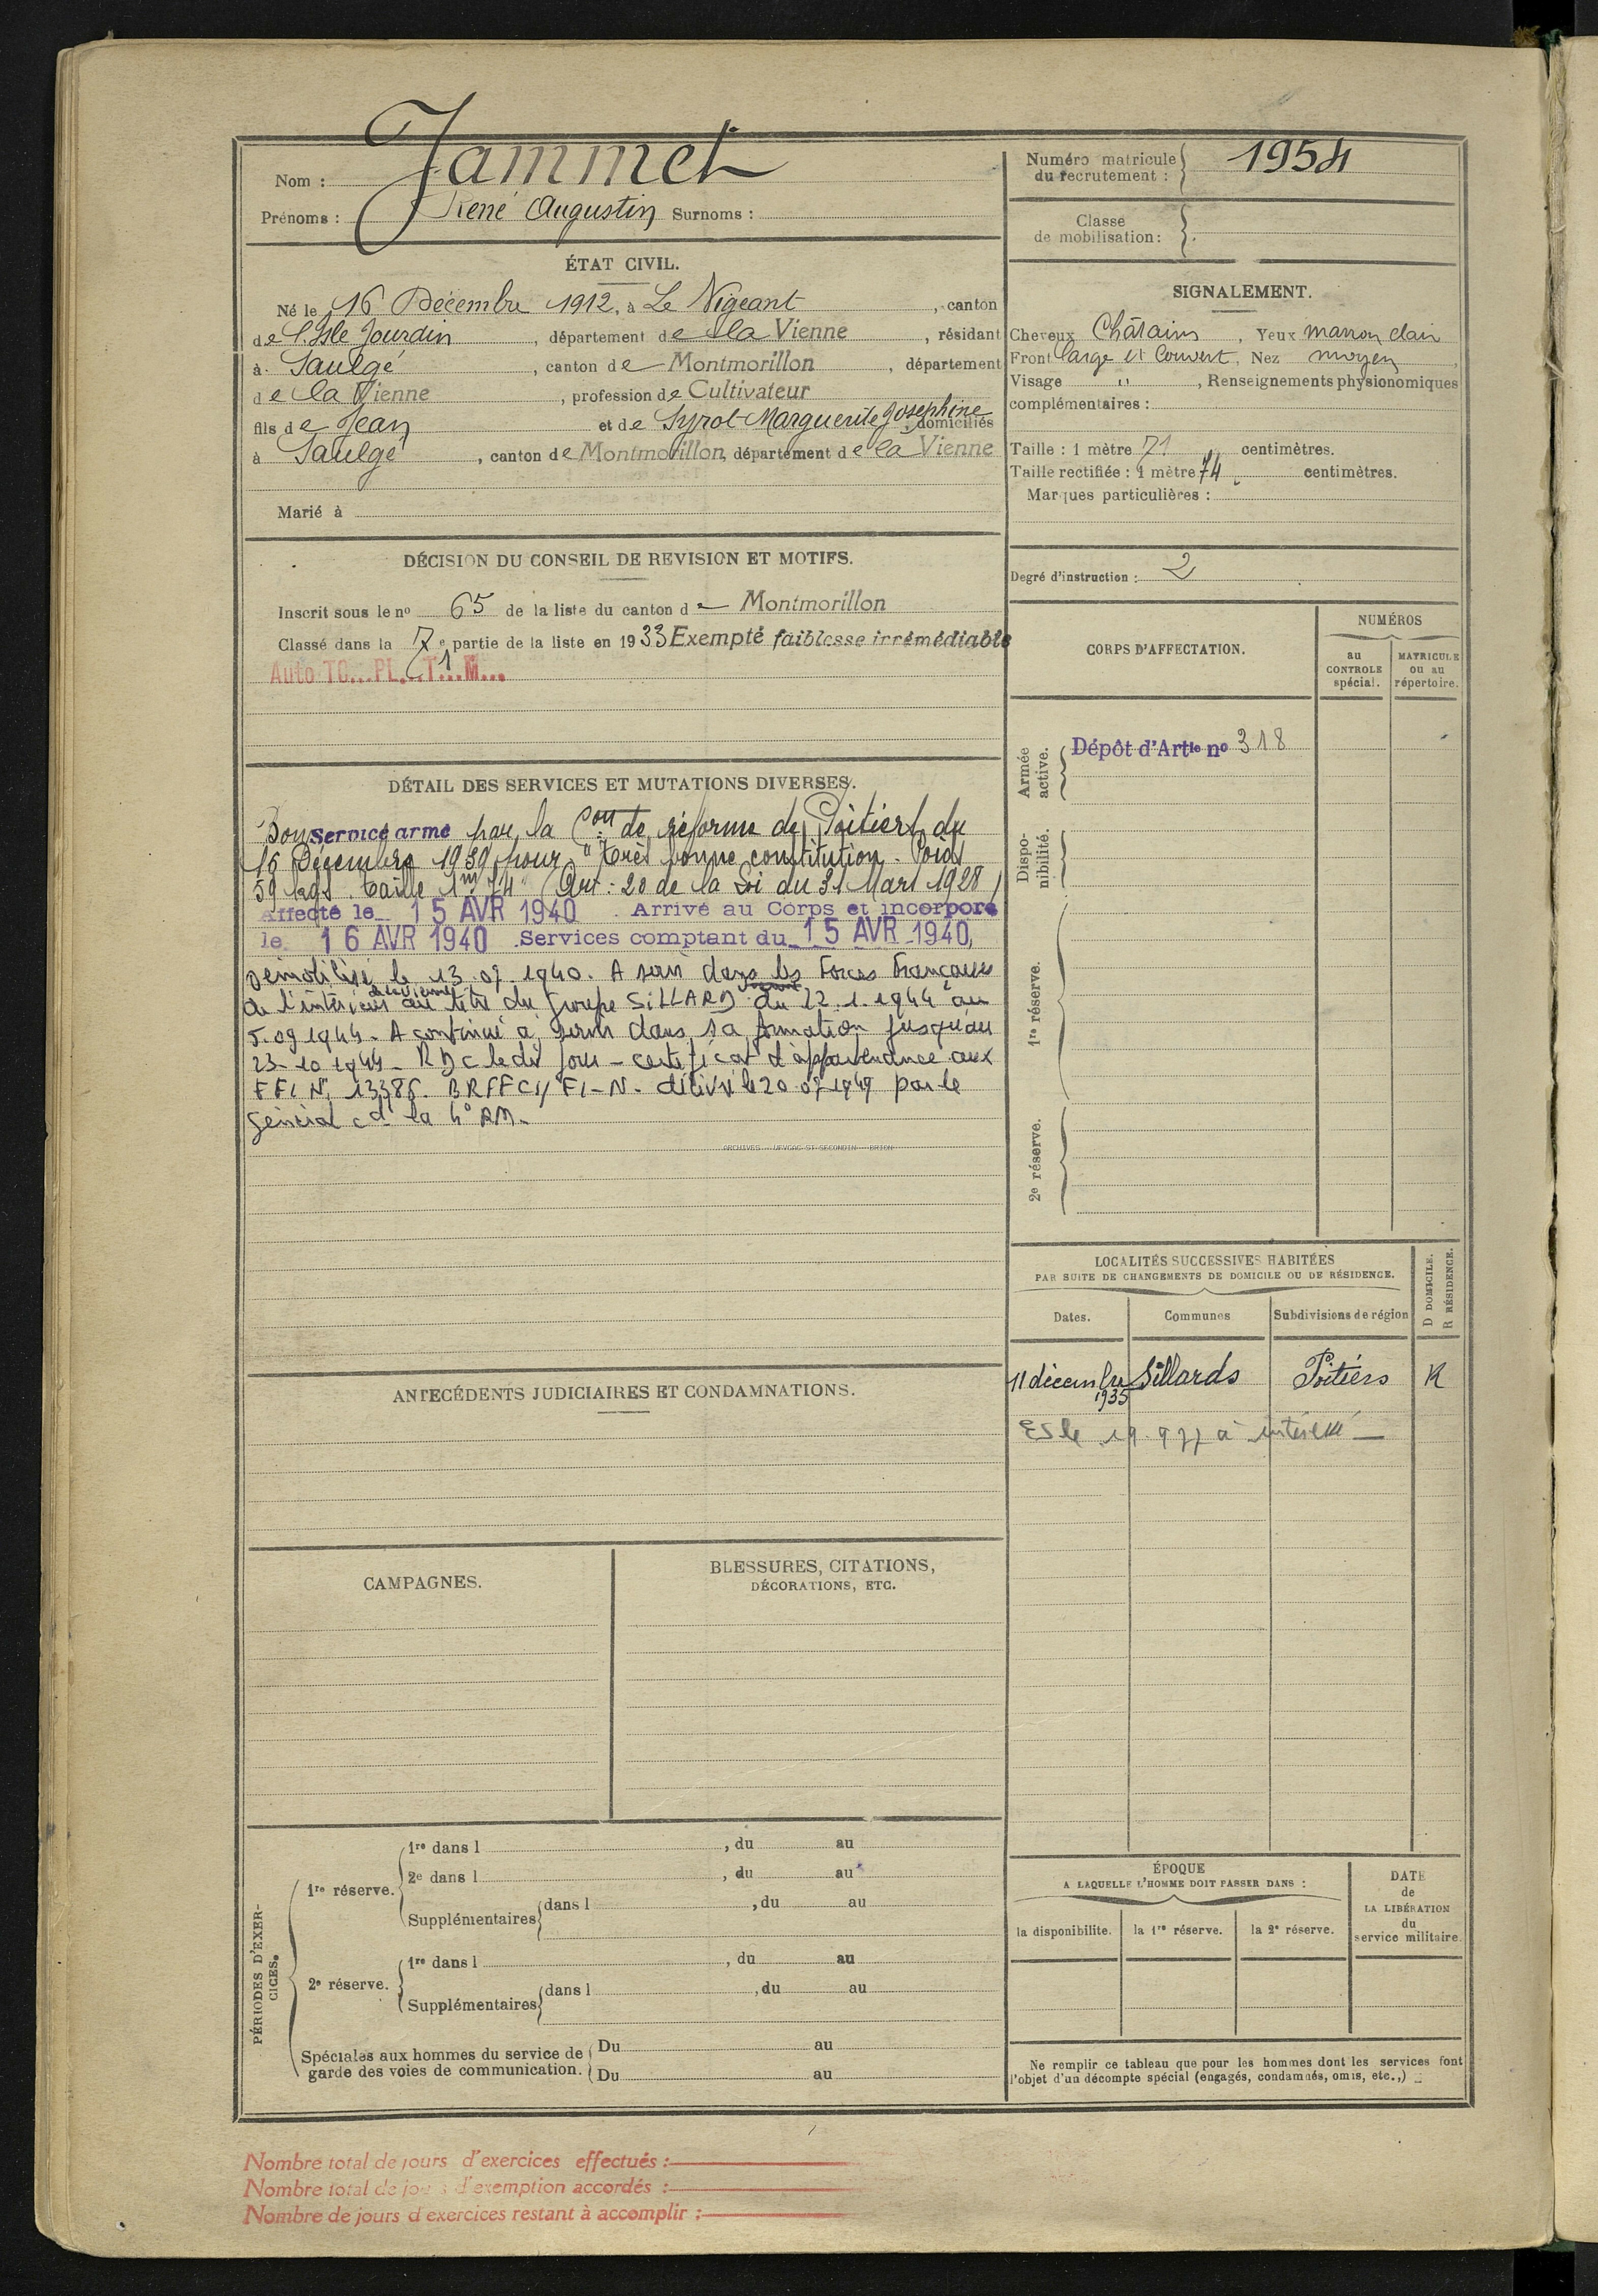 Nom : Jammet
Prénoms : René Augustin Surnoms :
ÉTAT CIVIL.
Né le 16 Décembre 1912, à Le Vigeant, canton
de l'Isle Jourdin, département de la Vienne, résidant
à Saulgé, canton de Montmorillon, département
de la Vienne, profession de Cultivateur
fils de Jean et de Syrot Marguerite Josephine domiciliés
à Saulgé, canton de Montmorillon, département de la Vienne
Marié à
DÉCISION DU CONSEIL DE REVISION ET MOTIFS.
Inscrit sous le no 65 de la liste du canton de Montmorillon
Classé dans la 7e partie de la liste en 1933 Exempté faiblesse irrémédiable
Auto TC...PL...T...M...
1
DÉTAIL DES SERVICES ET MUTATIONS DIVERSES.
Bon service armé par la Con de réforme de Poitiers du
16 Décembre 1939 pour "très bonne constitution. Poids
59 kgs. taille 1m 74" (Art: 20 de la Loi du 31 Mars 1928)
Affecté le 15 AVR 1940. Arrivé au Corps et incorporé
le 16 AVR 1940. Services comptant du 15 AVR 1940,
Démobilisé le 13.07.1940. A servi dans les Forces Françaises
de l'intérieur de la Vienne au titre du Groupe SILLARD du 22.1.1944 au
5.09 1944. A continué à servir dans sa formation jusqu'au
23-10 1944 - RDC le dit jour - certificat d'appartenance aux
FFI N° 13386. BRFFCI/FI-N. délivré le 20.07 1949 par le
Général cdt la 4° RM.
ARCHIVES - USSON-ST-SECONDIN - BRION
ANTECÉDENTS JUDICIAIRES ET CONDAMNATIONS.
CAMPAGNES.
BLESSURES, CITATIONS,
DÉCORATIONS, ETC.
PÉRIODES D'EXER-
CICES.
1re réserve.
1re dans l , du au
2e dans l , du au
Supplémentaires dans l , du au
2e réserve.
1re dans l , du au
Supplémentaires dans l , du au
Spéciales aux hommes du service de
garde des voies de communication.
Du au
Du au
Numéro matricule
du recrutement : 1954
Classe
de mobilisation :
SIGNALEMENT.
Cheveux Châtains, Yeux marron clair
Front large et Couvert, Nez moyen,
Visage ", Renseignements physionomiques
complémentaires :
Taille : 1 mètre 71 centimètres.
Taille rectifiée : 1 mètre 74 centimètres.
Marques particulières :
Degré d'instruction : 2
CORPS D'AFFECTATION.
NUMÉROS
au
CONTROLE
spécial.
MATRICULE
ou au
répertoire.
Armée
active.
Dépôt d'Artie no 318
Dispo-
nibilité.
1re réserve.
2e réserve.
LOCALITÉS SUCCESSIVES HABITÉES
PAR SUITE DE CHANGEMENTS DE DOMICILE OU DE RÉSIDENCE.
D DOMICILE.
R RÉSIDENCE.
Dates. Communes Subdivisions de région
11 décembre Sillards Poitiers R
1935
ES le 19.9 77 à intéressé
ÉPOQUE
A LAQUELLE L'HOMME DOIT PASSER DANS :
la disponibilite. la 1re réserve. la 2e réserve.
DATE
de
LA LIBÉRATION
du
service militaire.
Ne remplir ce tableau que pour les hommes dont les services font
l'objet d'un décompte spécial (engagés, condamnés, omis, etc.,)
Nombre total de jours d'exercices effectués :
Nombre total de jours d'exemption accordés :
Nombre de jours d'exercices restant à accomplir :